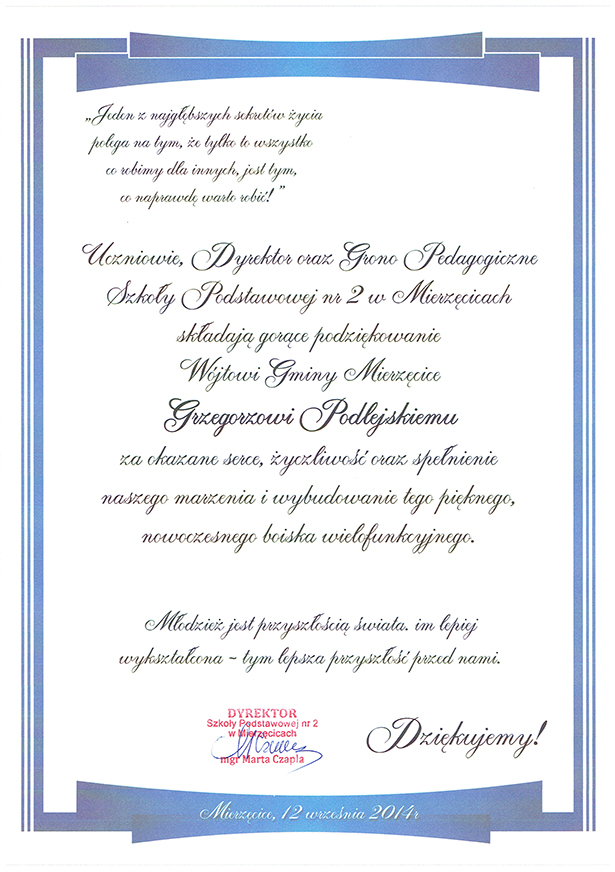 „Jeden z najgłębszych sekretów życia
polega na tym, że tylko to wszystko
co robimy dla innych, jest tym,
co naprawdę warto robić! ”
Uczniowie, Dyrektor oraz Grono Pedagogiczne
Szkoły Podstawowej nr 2 w Mierzęcicach
składają gorące podziękowanie
Wójtowi Gminy Mierzęcice
Grzegorzowi Podlejskiemu
za okazane serce, życzliwość oraz spełnienie
naszego marzenia i wybudowanie tego pięknego,
nowoczesnego boiska wielofunkcyjnego.
Młodzież jest przyszłością świata. im lepiej
wykształcona – tym lepsza przyszłość przed nami.
DYREKTOR
Szkoły Podstawowej nr 2
w Mierzęcicach
mgr Marta Czapla
Dziękujemy!
Mierzęcice, 12 września 2014r